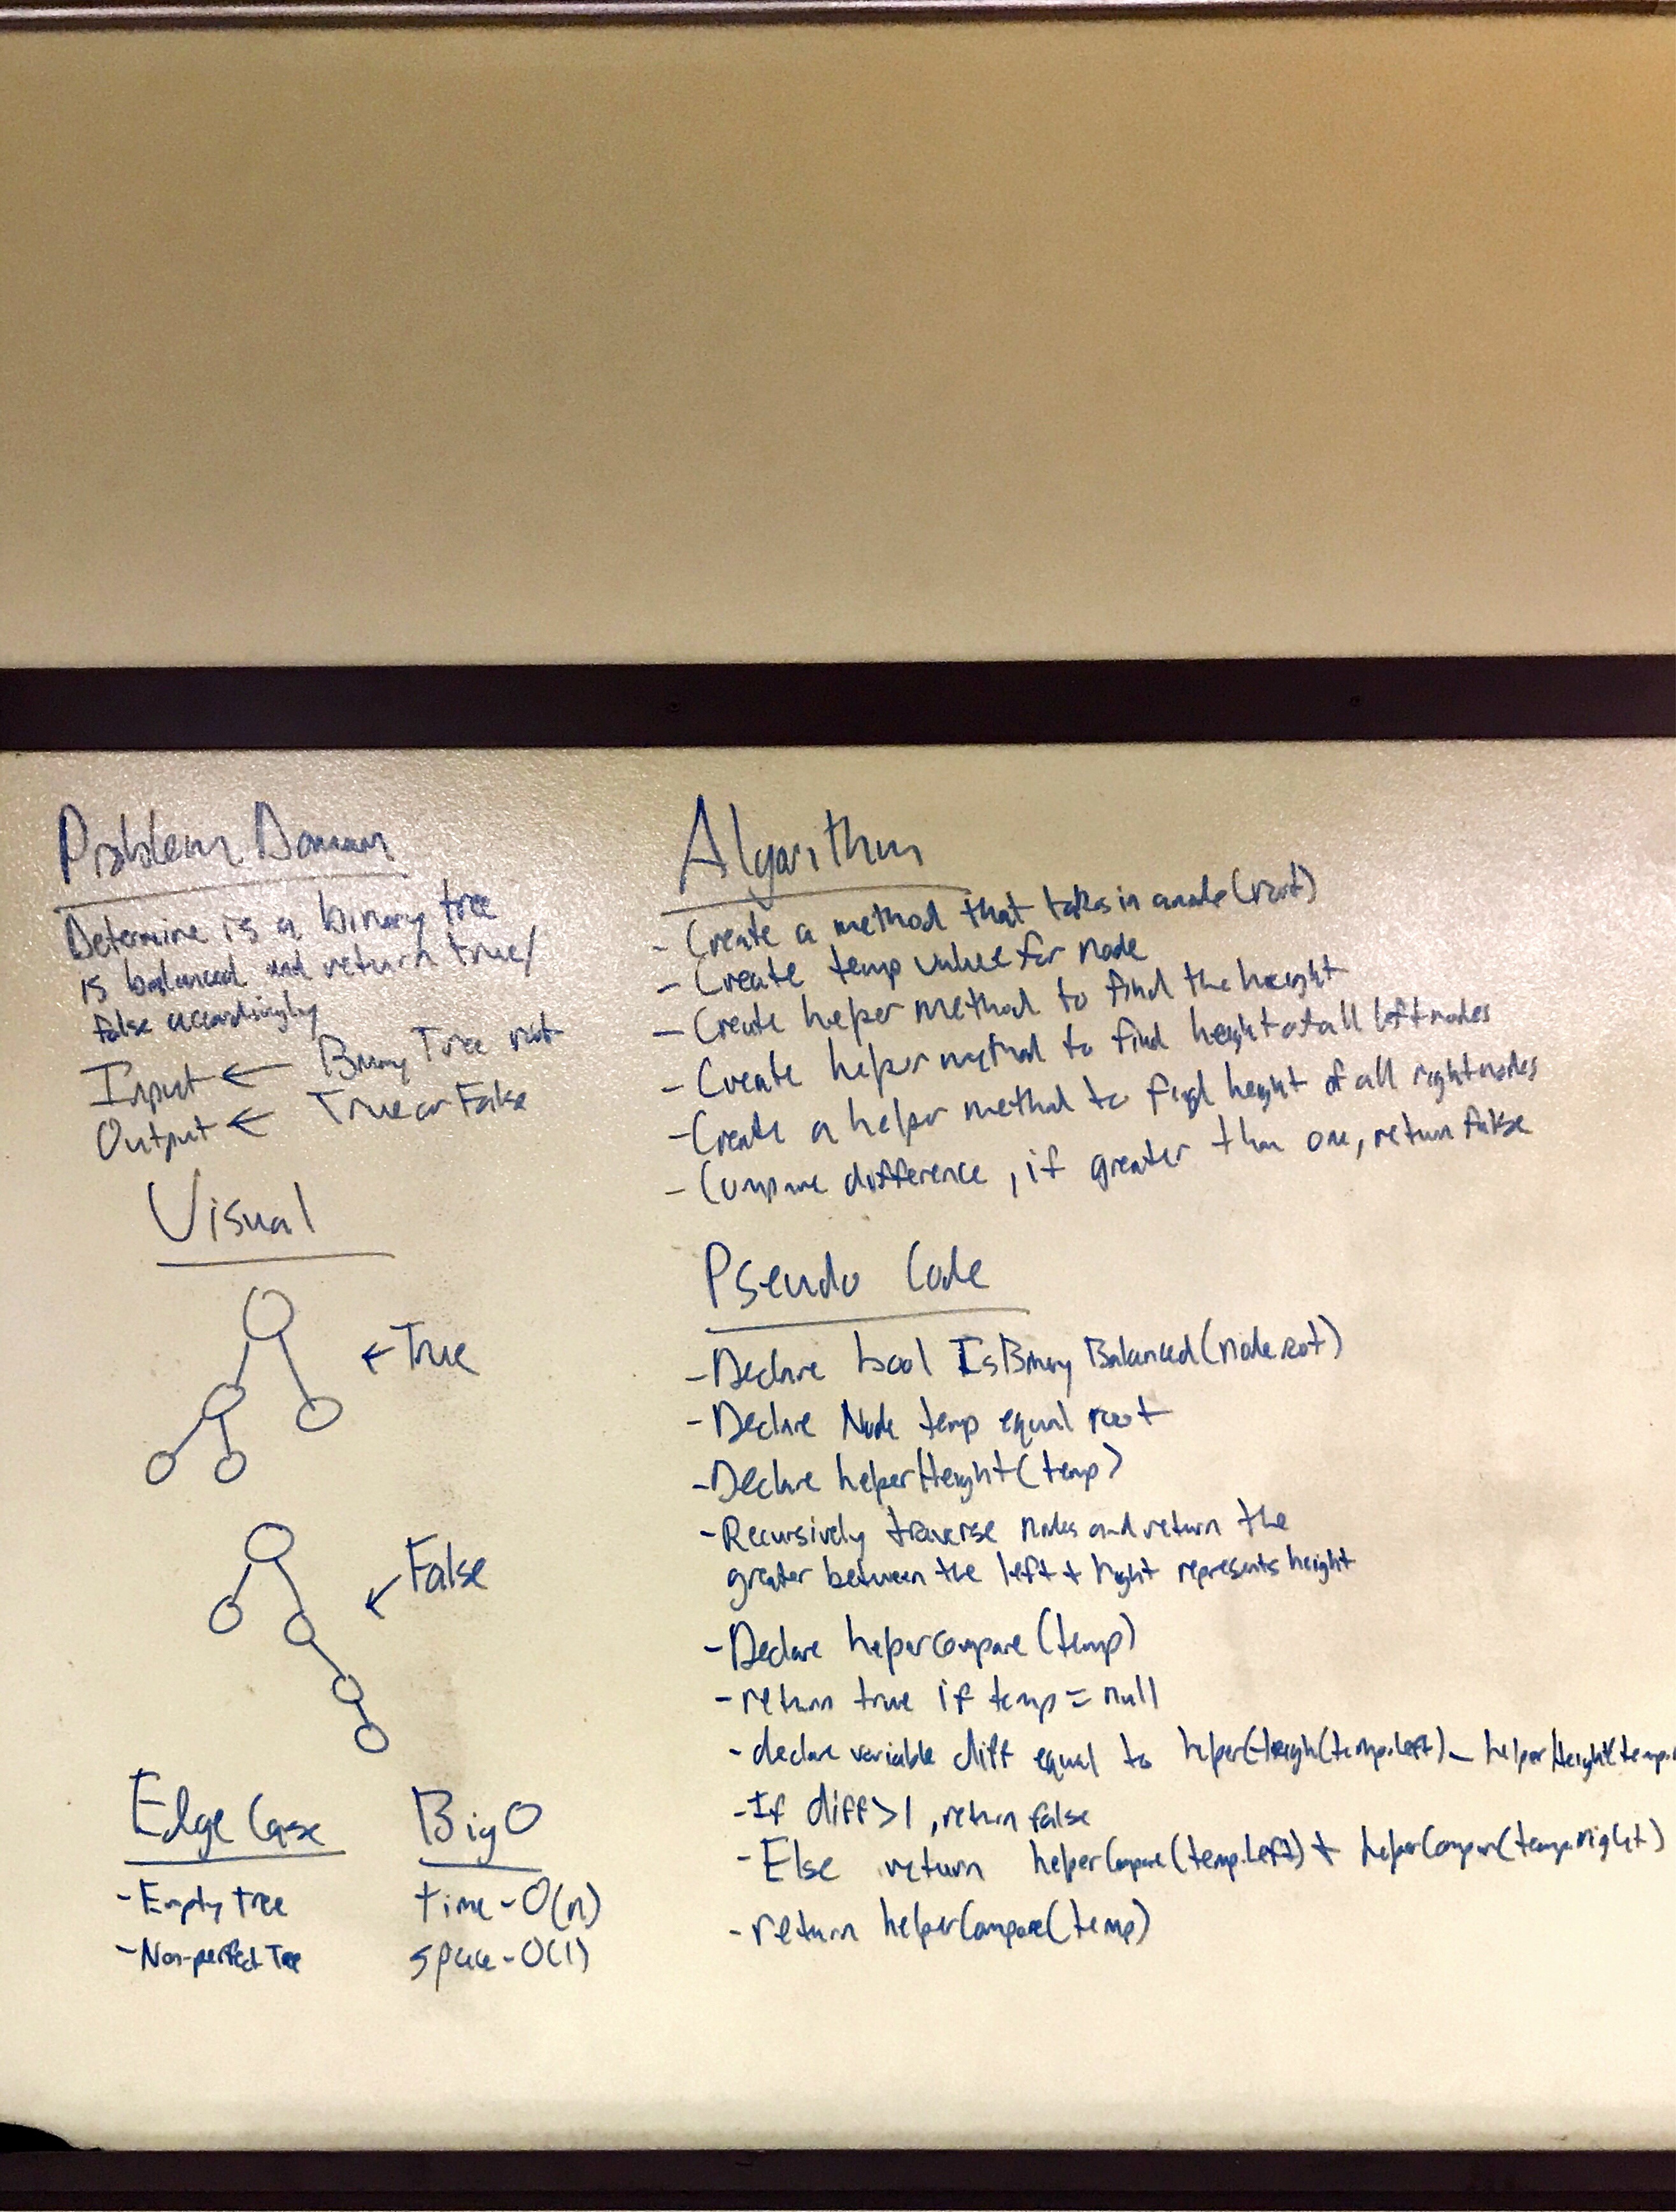 Problem Domain
Determine is a binary tree
is balanced and return true/
false accordingly
Input ← Binary Tree root
Output ← True or False
Visual
← True
← False
Edge Case
- Empty tree
- Non-perfect Tree
Big O
time - O(n)
space - O(1)
Algorithm
- Create a method that takes in a node (root)
- Create temp value for node
- Create helper method to find the height
- Create helper method to find height of all left nodes
- Create a helper method to find height of all right nodes
- Compare difference, if greater than one, return false
Pseudo Code
- Declare bool IsBinary Balanced (node root)
- Declare Node temp equal root
- Declare helperHeight (temp)
- Recursively traverse nodes and return the
greater between the left + right represents height
- Declare helperCompare (temp)
- return true if temp = null
- declare variable diff equal to helperHeigh(temp.left) - helperHeight(temp.
- If diff > 1, return false
- Else return helperCompare(temp.left) + helperCompare(temp.right)
- return helperCompare(temp)